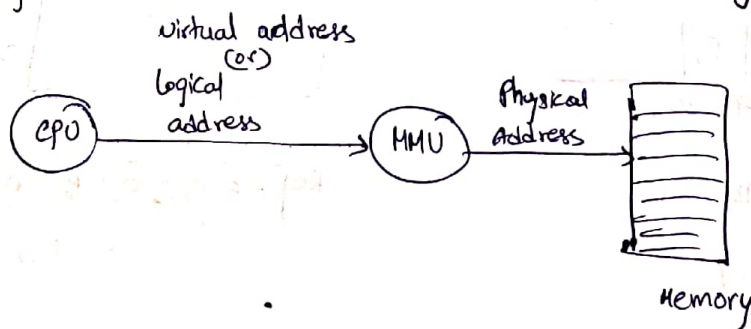 virtual address
(or)
Logical
address
CPU
MMU
Physical
Address
Memory